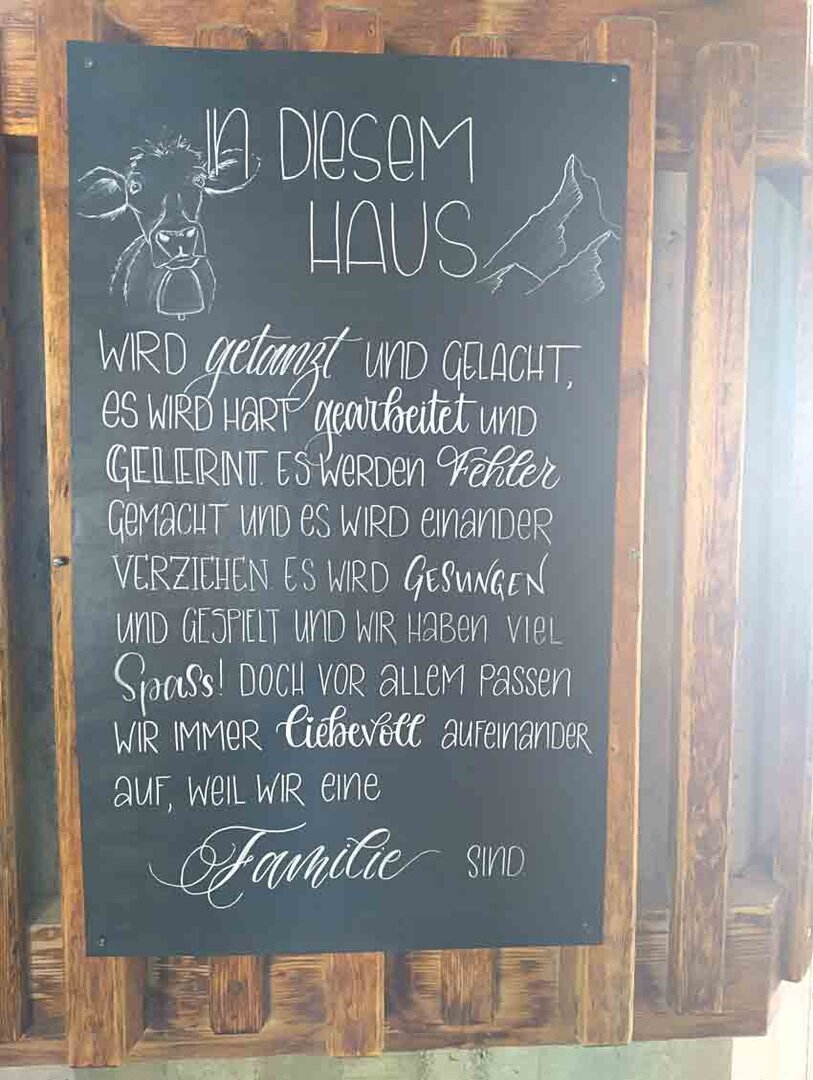 IN DIESEM
HAUS
WIRD getanzt UND GELACHT,
ES WIRD HART gearbeitet UND
GELERNT. ES WERDEN Fehler
GEMACHT UND ES WIRD EINANDER
VERZIEHEN. ES WIRD GESUNGEN
UND GESPIELT UND WIR HABEN VIEL
Spass! DOCH VOR ALLEM PASSEN
WIR IMMER liebevoll AUFEINANDER
AUF, WEIL WIR EINE
Familie SIND.